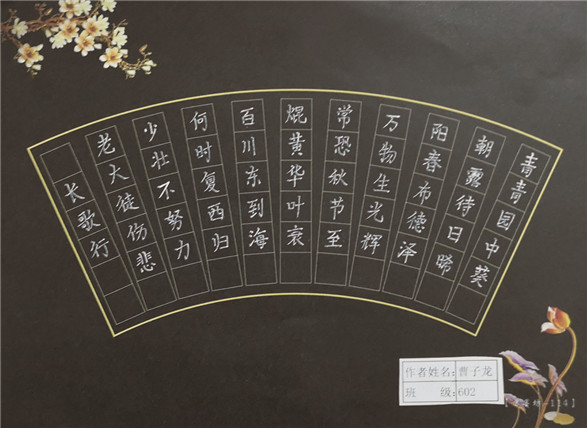 青青园中葵
朝露待日晞
阳春布德泽
万物生光辉
常恐秋节至
焜黄华叶衰
百川东到海
何时复西归
少壮不努力
老大徒伤悲
长歌行
作者姓名:曹子龙
班级:602